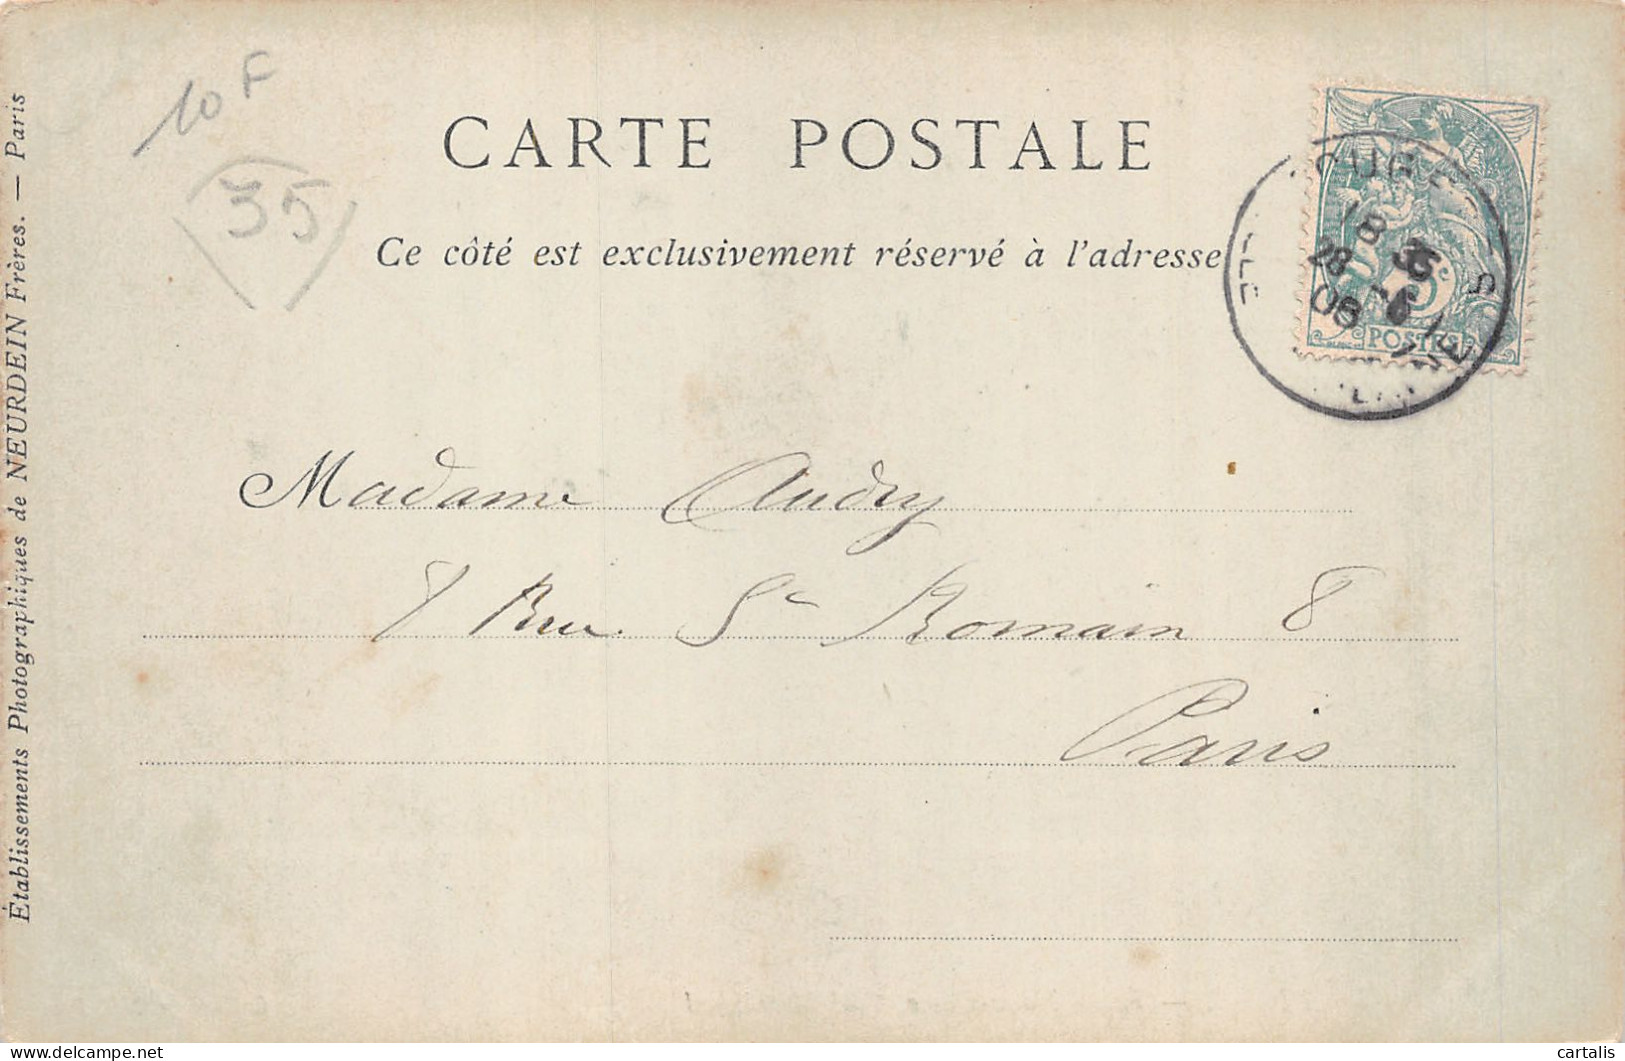 10 F
35
CARTE POSTALE
Ce côté est exclusivement réservé à l'adresse
5c
POSTES
Madame Audry
8 Rue St Romain 8
Paris
Établissements Photographiques de NEURDEIN Frères. — Paris
delcampe.net
cartalis